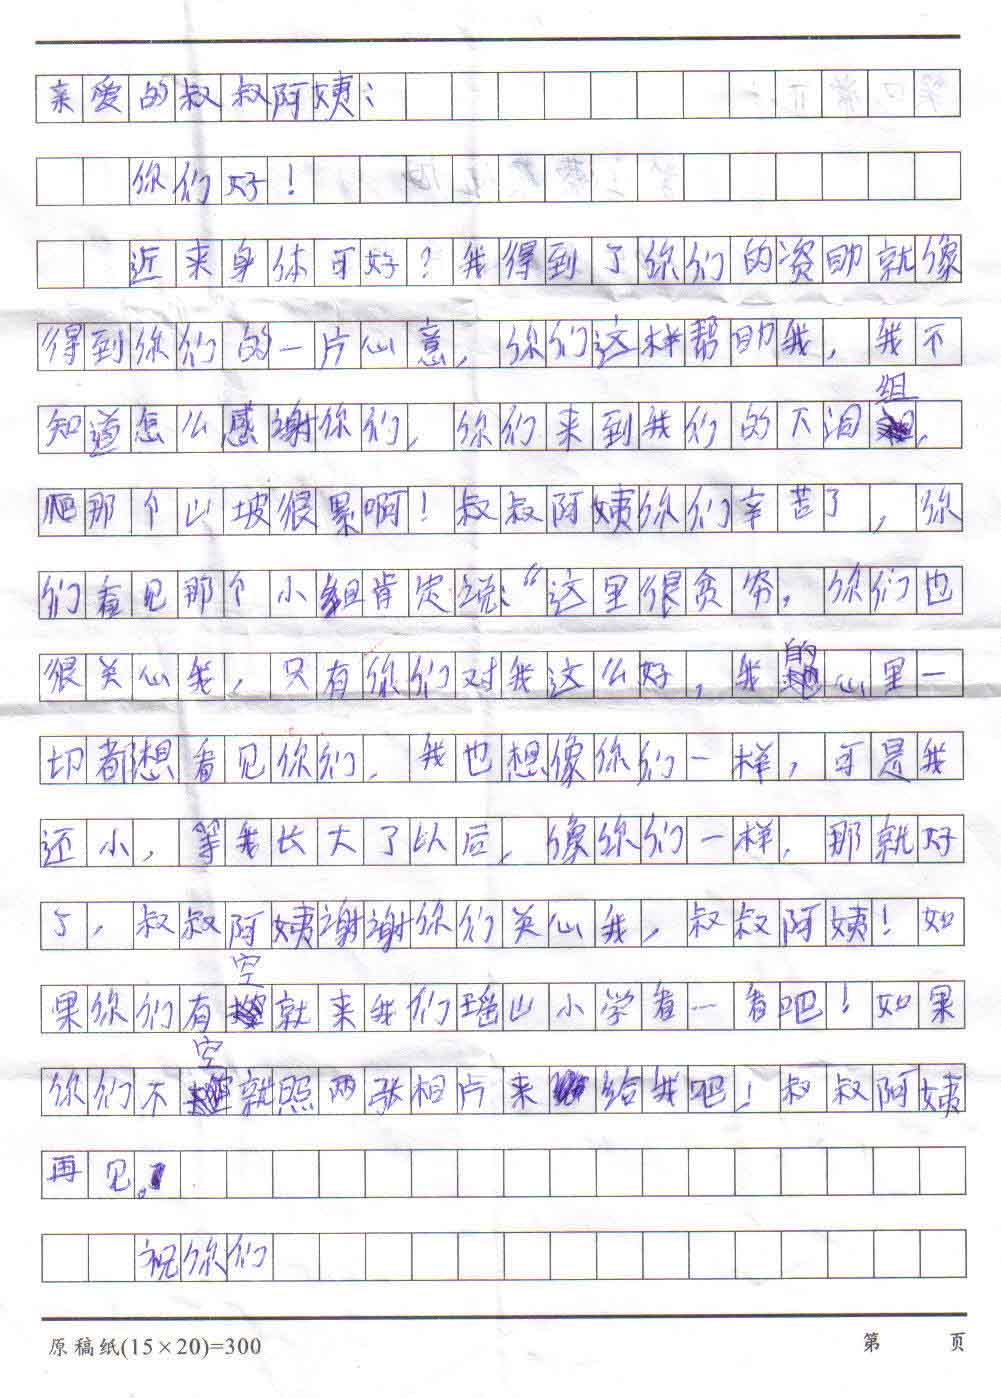 亲爱的叔叔阿姨：
你们好！
近来身体可好？我得到了你们的资助就像
得到你们的一片心意，你们这样帮助我，我不
知道怎么感谢你们，你们来到我们的下洄组，
爬那个山坡很累啊！叔叔阿姨你们辛苦了，你
们看见那个小组肯定说：“这里很贫穷。你们也
很关心我，只有你们对我这么好，我的心里一
切都想看见你们，我也想像你们一样，可是我
还小，等我长大了以后，像你们一样，那就好
了，叔叔阿姨谢谢你们关心我，叔叔阿姨！如
果你们有空就来我们瑶山小学看一看吧！如果
你们不空就照两张相片来给我吧！叔叔阿姨
再见。
祝你们
原稿纸(15×20)=300 第 页